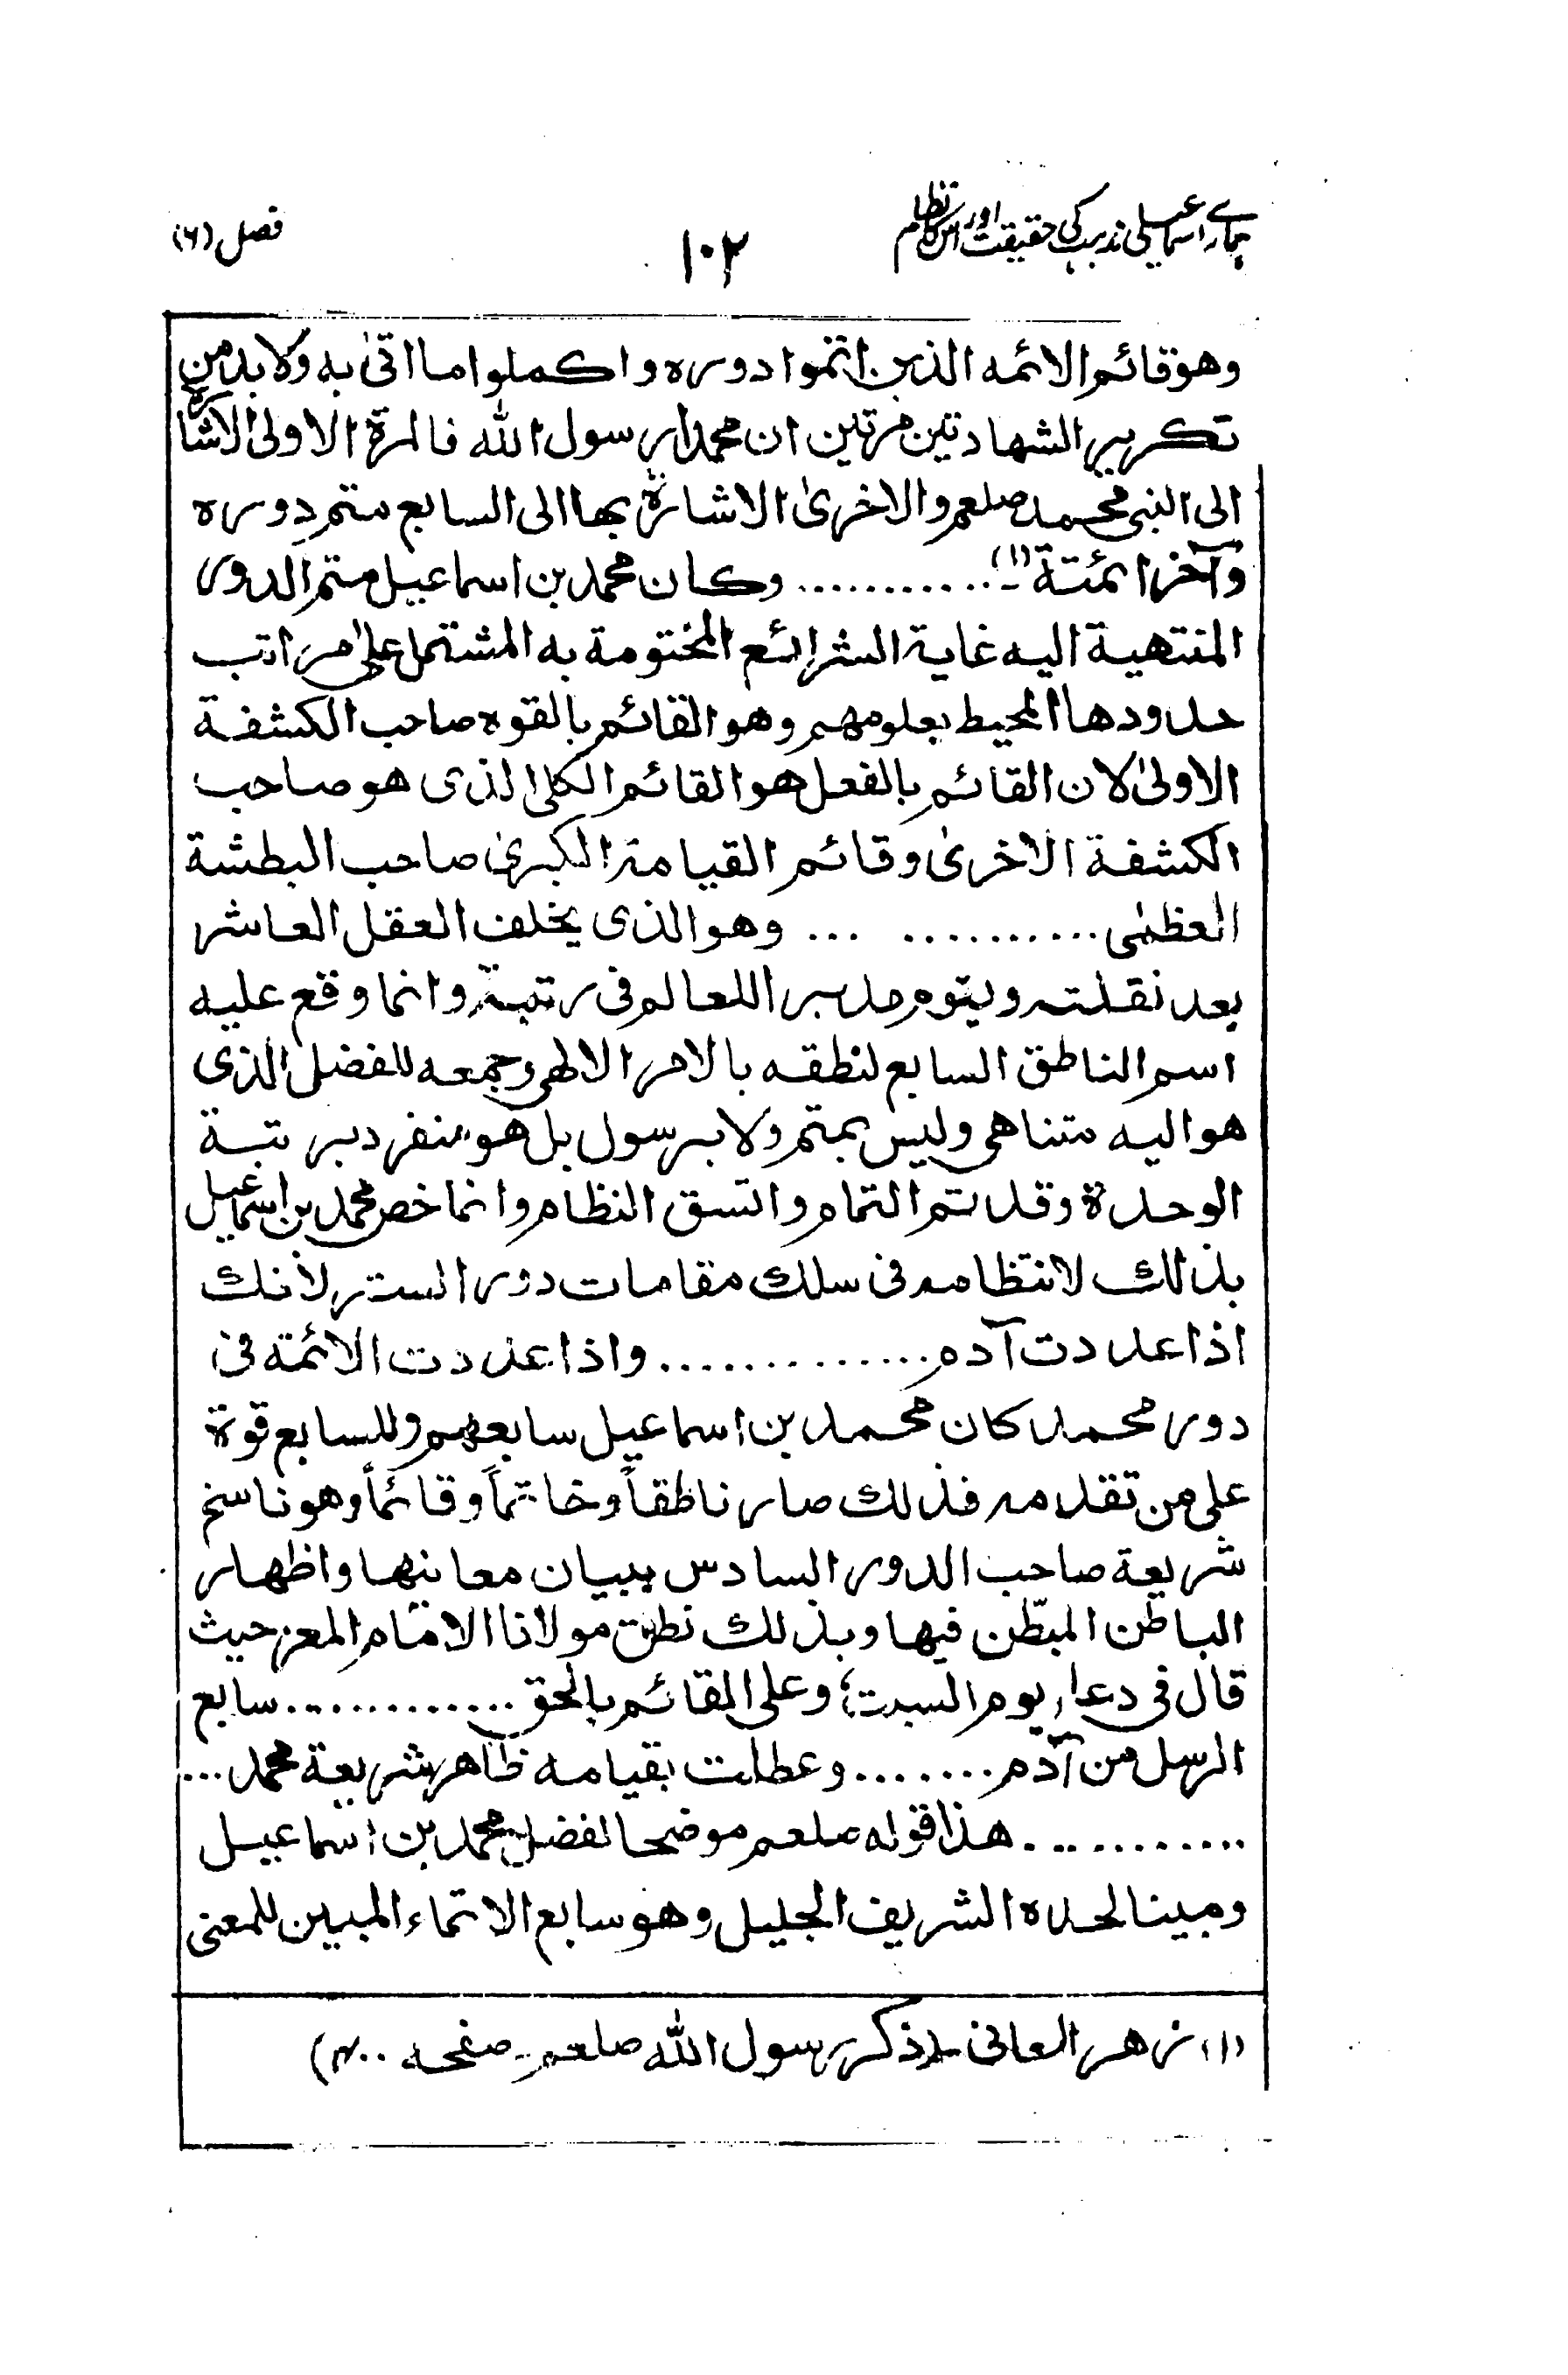 ہمارے اسماعیلی مذہب کی حقیقت اور اس کا نظام
۱۰۲
فصل (۶)
وهو قائم الائمه الذين اتموا دوره واكملوا ما اتیٰ به ولا بد من
تكرير الشهادتين مرتين ان محمدا رسول الله فالمرة الاولیٰ الاشارة
الی النبی محمد صلعم والاخریٰ الاشارة بها الی السابع متم دوره
وآخر ائمتة (۱)۔ ............ وكان محمد بن اسماعيل متم الدور
المنتهية اليه غاية الشرائع المختومة به المشتمل علیٰ مراتب
حدودها المحيط بعلومهم وهو القائم بالقوه صاحب الكشفة
الاولیٰ لان القائم بالفعل هو القائم الكلی الذی هو صاحب
الكشفة الاخریٰ وقائم القيامة الكبریٰ صاحب البطشة
العظمٰی .............. وهو الذی يخلف العقل العاشر
بعد نقلته ويقوم مدبر اللعالم فی رتبة وانما وقع عليه
اسم الناطق السابع لنطقه بالامر الالهی وجمعه للفضل الذی
هو اليه متناهی وليس بمتم ولا برسول بل هو منفرد برتبة
الوحدة وقد تم التمام واتسق النظام وانما خص محمد بن اسماعيل
بذالك لانتظامه فی سلك مقامات دور الستر لأنك
اذا عددت آدم .............. واذا عددت الائمة فی
دور محمد كان محمد بن اسماعيل سابعهم وللسابع قوة
علی من تقدمه فذلك صار ناطقاً وخاتماً وقائماً وهو ناسخ
شريعة صاحب الدور السادس ببيان معانيها واظهار
الباطن المبطّن فيها وبذلك نطق مولانا الامام المعز حيث
قال فی دعاء يوم السبت؛ وعلی القائم بالحق ............. سابع
الرسل من آدم ........ وعطلت بقيامه ظاهر شريعة محمد ...
............ هذا قوله صلعم موضحا لفضل محمد بن اسماعيل
ومبينا لحده الشريف الجليل وهو سابع الاتماء المبين للمعنی
(۱) زهر المعانی ـ ذكر رسول الله صلعم۔ صفحه ..)